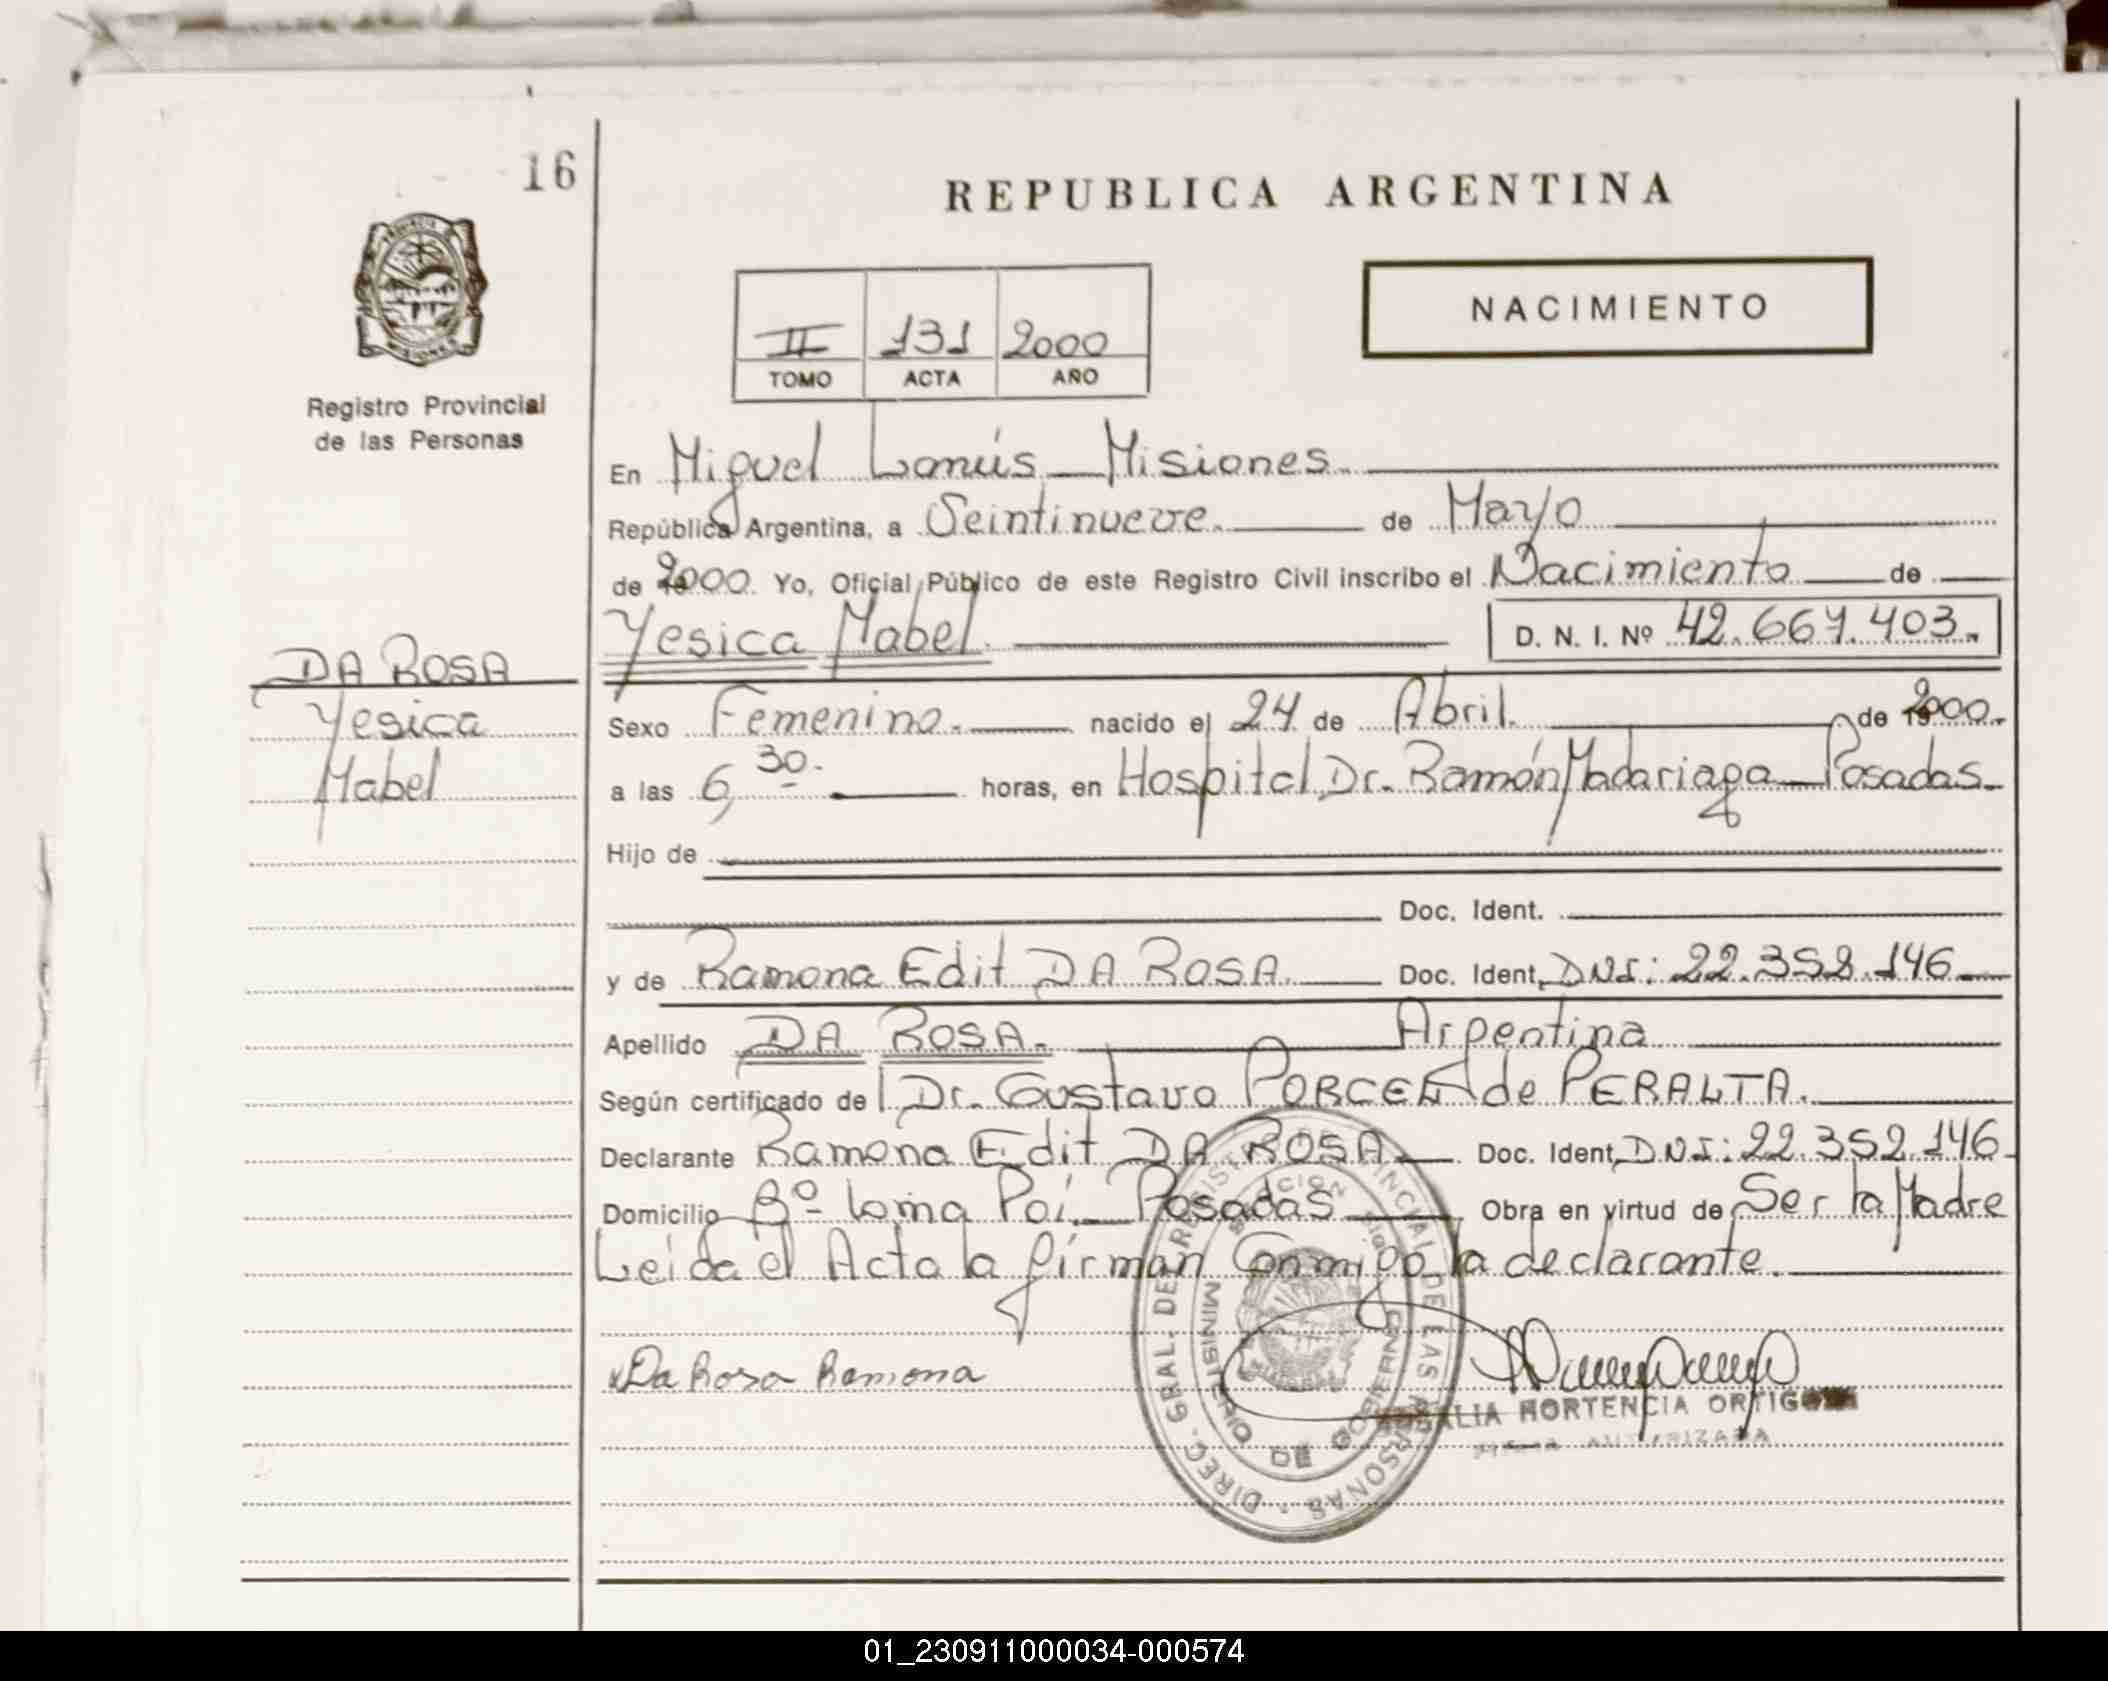 16
REPUBLICA ARGENTINA
II 131 2000
TOMO ACTA AÑO
NACIMIENTO
Registro Provincial
de las Personas
En Miguel Lanús Misiones
República Argentina, a Veintinueve de Mayo
de 2000. Yo, Oficial Público de este Registro Civil inscribo el Nacimiento de
Yesica Mabel. D. N. I. Nº 42.667.403.
DA ROSA
Yesica
Mabel
Sexo Femenino. nacido el 24 de Abril. de 2000.
a las 6,30. horas, en Hospital Dr. Ramón Madariaga Posadas.
Hijo de
Doc. Ident.
y de Ramona Edit DA ROSA. Doc. Ident. DNI: 22.352.146
Apellido DA ROSA. Argentina
Según certificado de Dr. Gustavo de PERALTA.
Declarante Ramona Edit DA ROSA Doc. Ident. DNI: 22.352.146
Domicilio Bº Loma Poí Posadas Obra en virtud de Ser la Madre
Leída el Acta la firman Conmigo la declarante.
Da Rosa Ramona
HORTENCIA
DIREC. GRAL. DEL REGISTRO PROVINCIAL DE LAS PERSONAS
MINISTERIO DE GOBIERNO
01_230911000034-000574